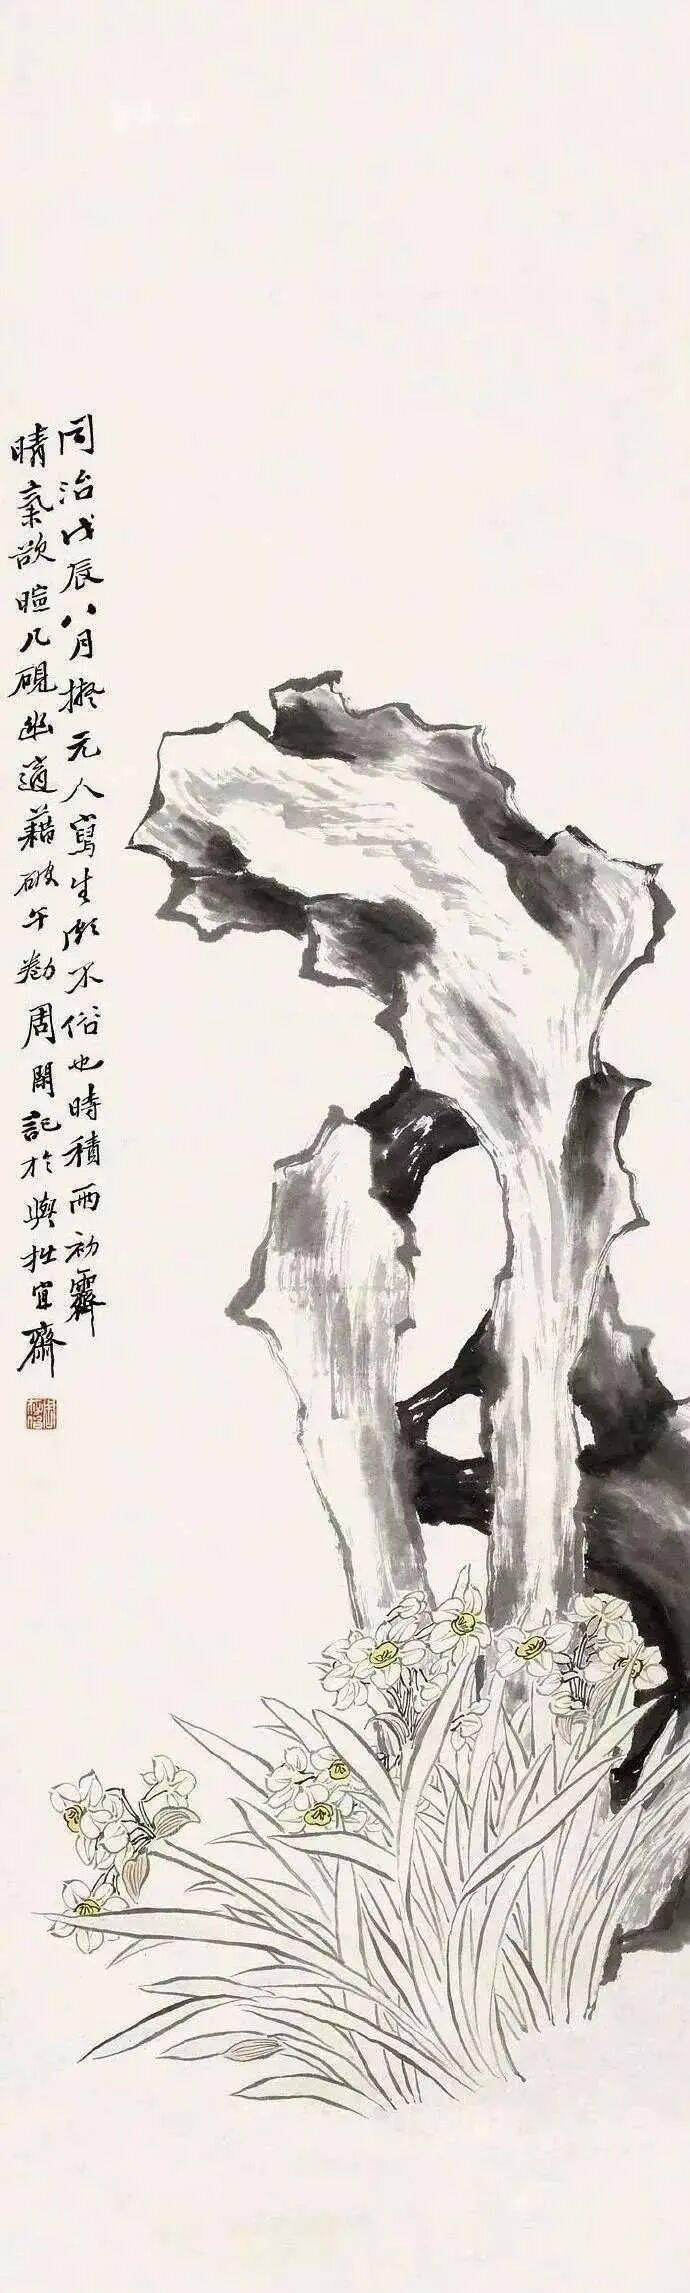 同治戊辰八月擬元人寫生頗不俗也時積雨初霽
晴氣欲暄几硯幽適藉破午勌周閑記於與拙宜齋